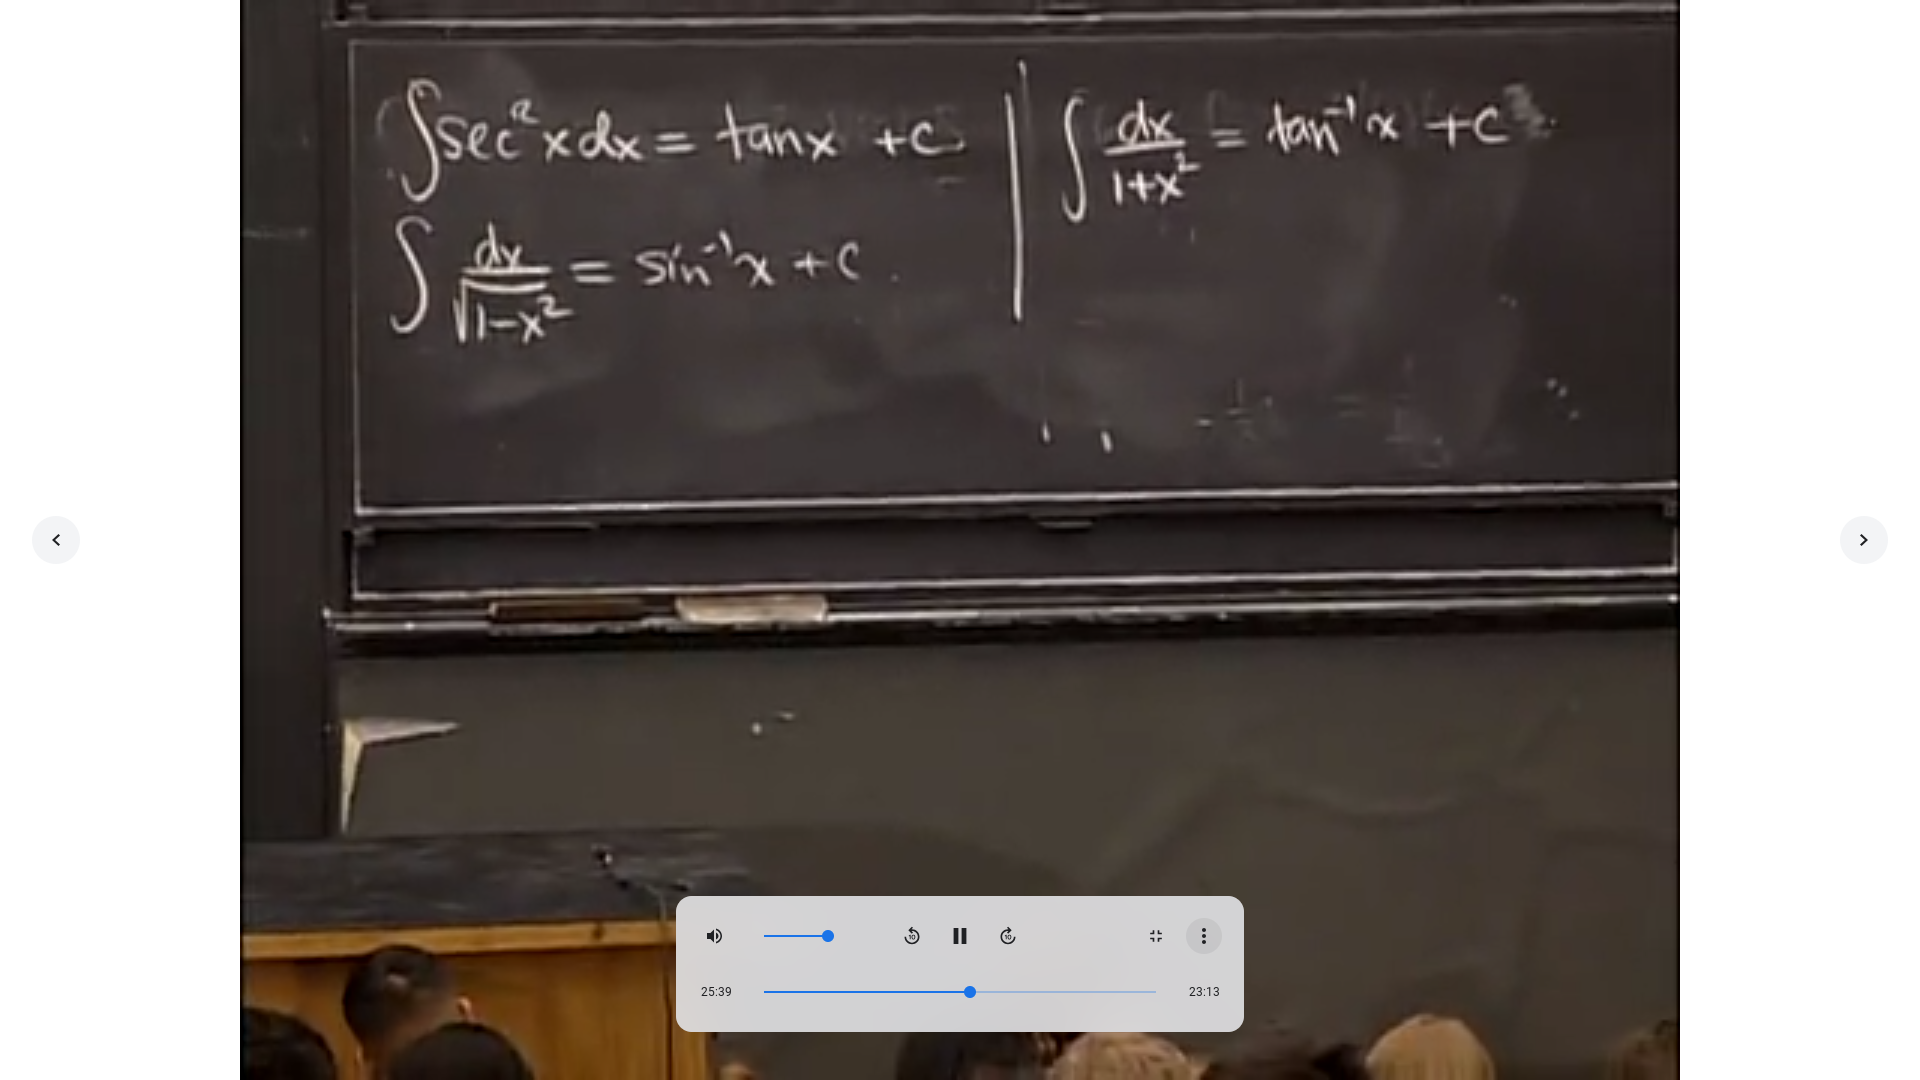 ∫sec²xdx = tanx +c
∫ dx/√1-x² = sin⁻¹x + c
∫ dx/1+x² = tan⁻¹x +c
10
10
25:39
23:13